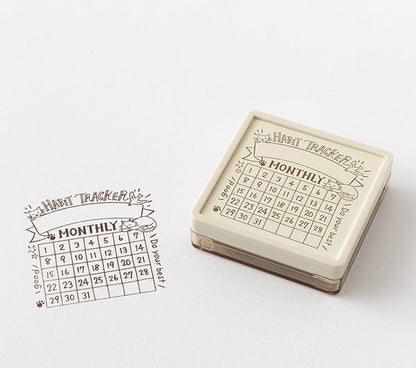 HABIT TRACKER
MONTHLY
1 2 3 4 5 6 7
8 9 10 11 12 13 14
15 16 17 18 19 20 21
22 23 24 25 26 27 28
29 30 31
Good!
Do your best!
HABIT TRACKER
MONTHLY
1 2 3 4 5 6 7
8 9 10 11 12 13 14
15 16 17 18 19 20 21
22 23 24 25 26 27 28
29 30 31
Good!
Do your best!